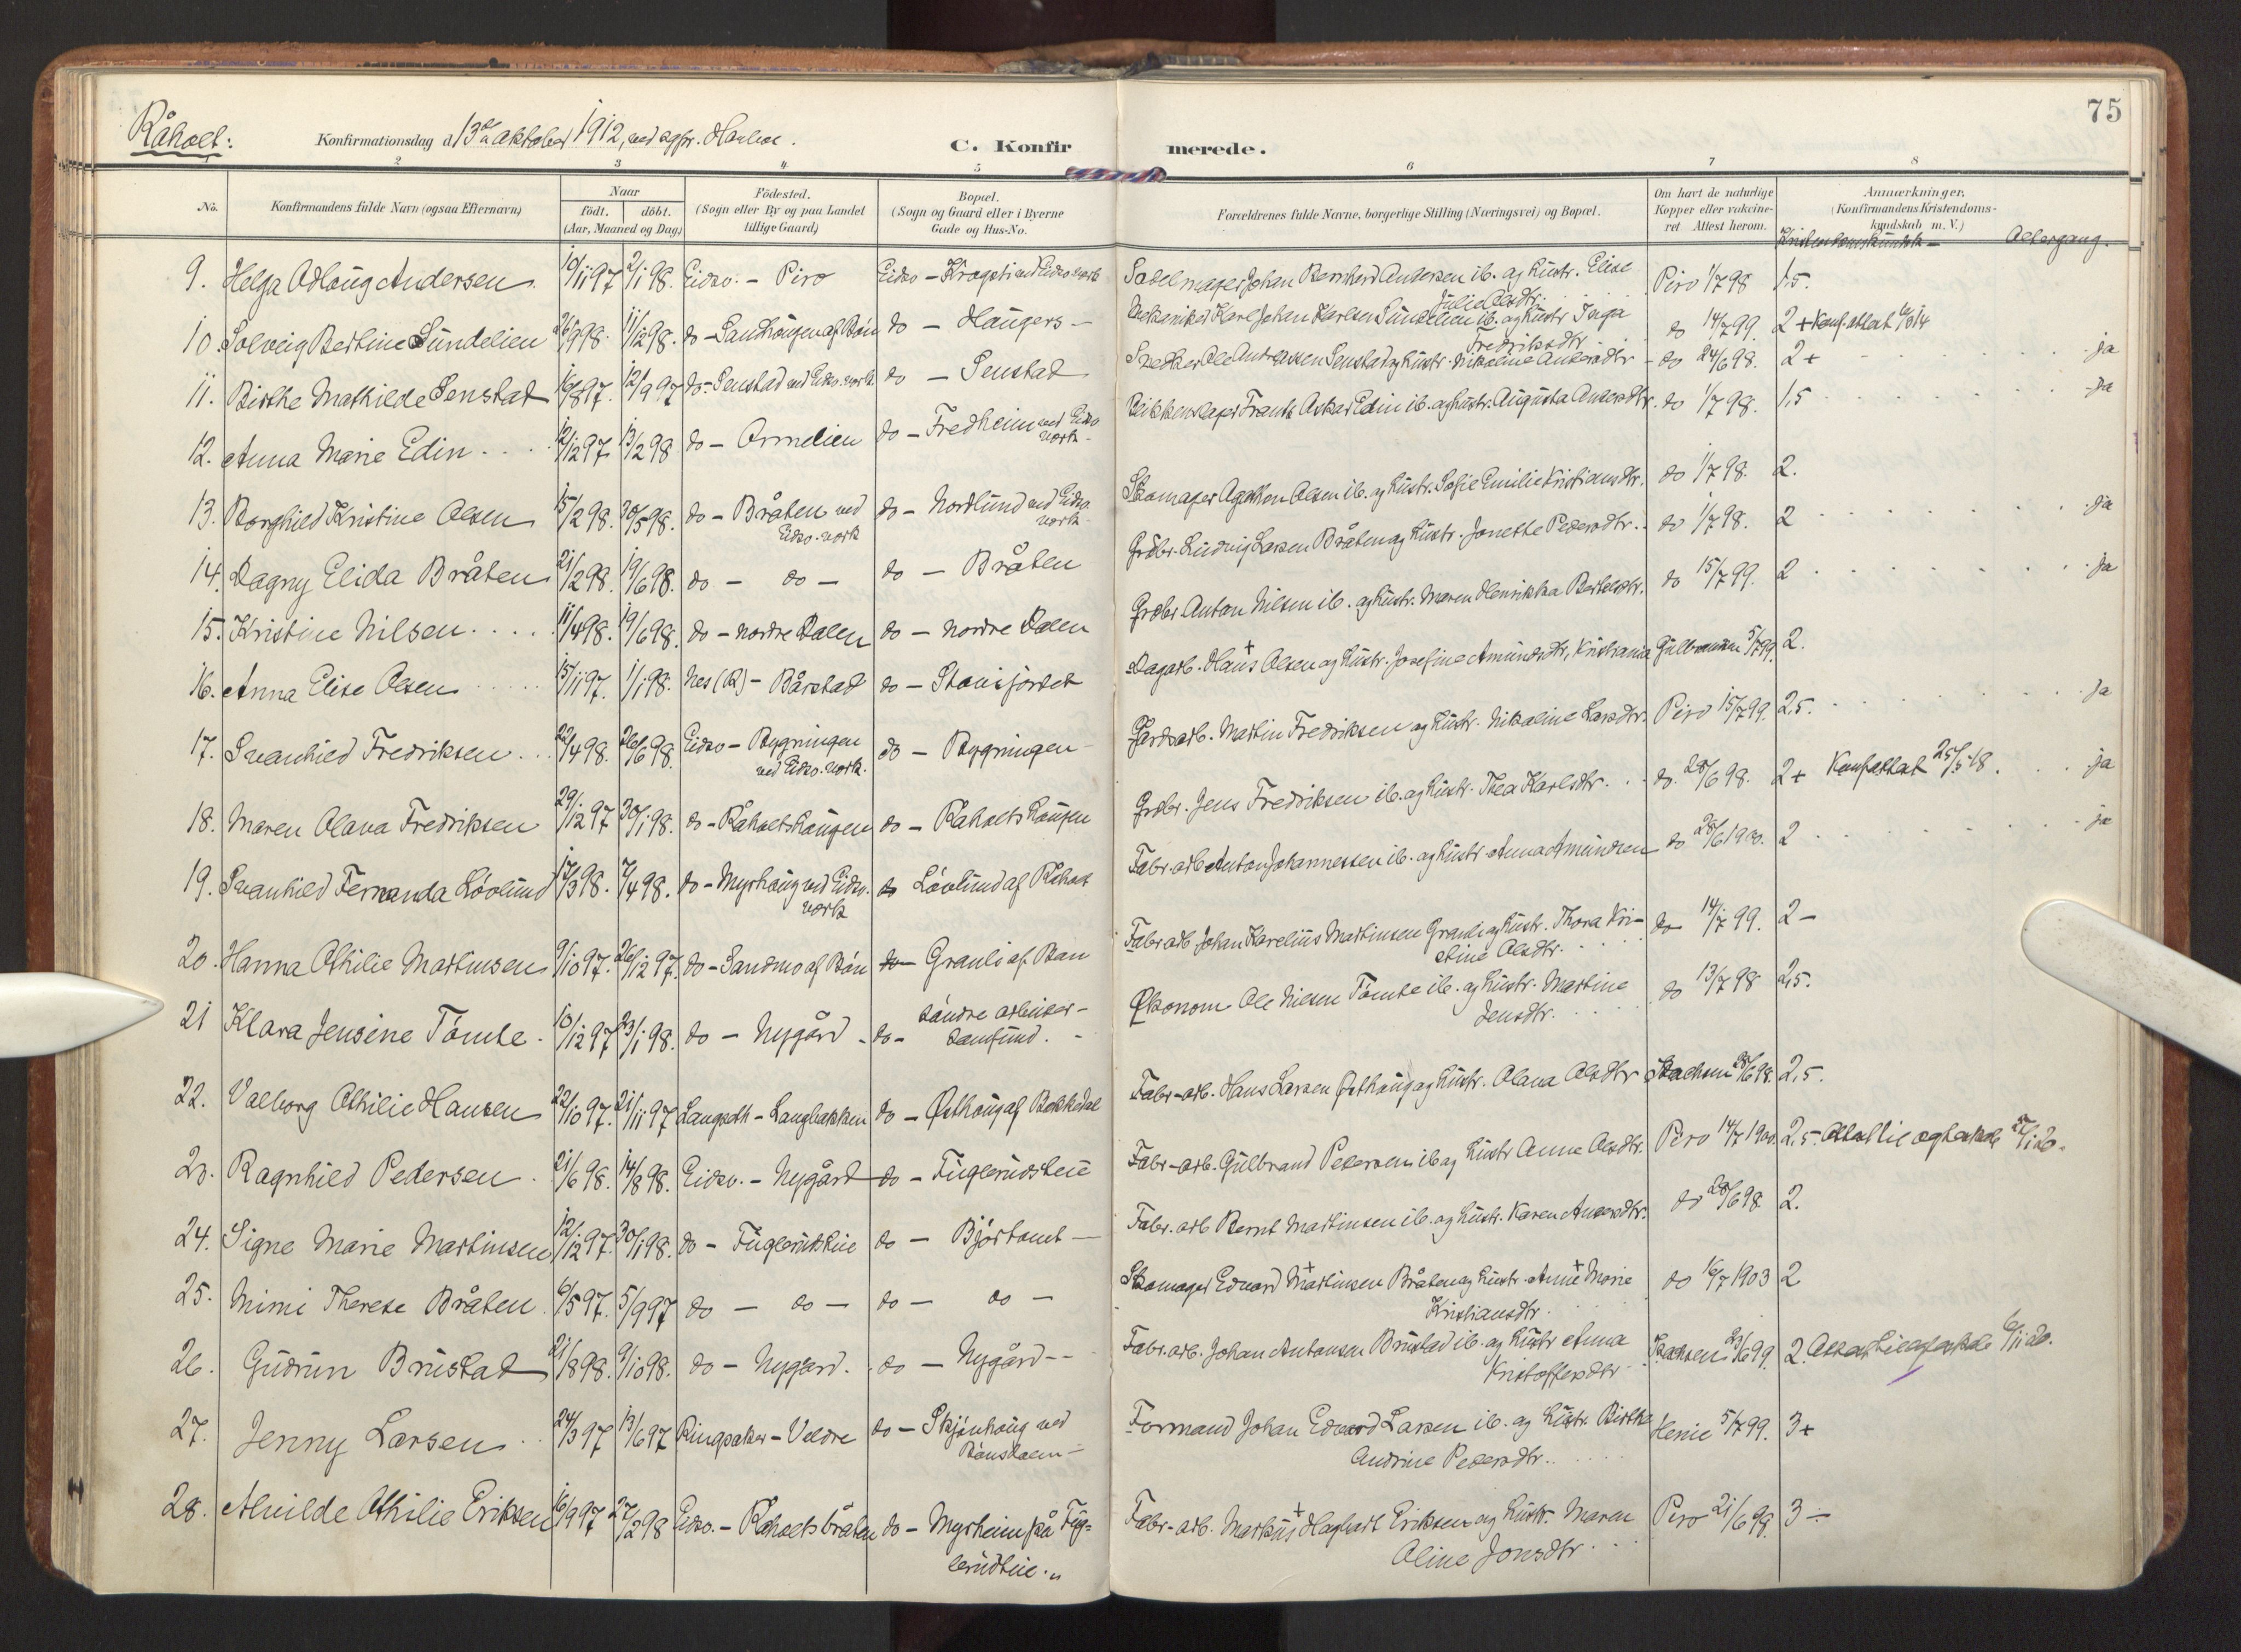 75
Råholt:
Konfirmationsdag d. 13de oktober 1912, ved sgpr.
C. Konfirmerede.
1 2 3 4 5 6 7 8
No. Konfirmandens fulde Navn (ogsaa Efternavn) Naar födt. döbt. (Aar, Maaned og Dag) Födested. (Sogn eller By og paa Landet tillige Gaard) Bopæl. (Sogn og Gaard eller i Byerne Gade og Hus-No. Forældrenes fulde Navne, borgerlige Stilling (Næringsvei) og Bopæl. Om havt de naturlige Kopper eller vakcineret Attest herom. Anmærkninger. (Konfirmandens Kristendomskundskab m. V.)
Kristendomskundsk- Altergang.
9. Helga Adlaug Andersen. 10/11 97 2/1 98. Eidsv. - Piro Eidsv - Krogsti ved Eidsv. verk Sadelmager Johan Bernhard Andersen ib. og hustr. Elise Julie Olsdtr. Piro 1/7 98 1,5.
10. Solveig Bertine Sundelien 26/9 98. 11/12 98. do - Sandhaugen af Bøn do - Haugers - Mekaniker Karl Johan Karlsen Sundelien ib. og hustr Inga Fredriksdtr. do 14/7 99. 2+ Konf. attest 14
11. Birthe Mathilde Senstad 16/8 97. 12/9 97 do - Senstad ved Eidsv. verk. do - Senstad Snedker Ole Andreassen Senstad og hustr. Nikoline Andersdtr - do 24/6 98. 2+ ja
12. Anna Marie Edin 12/12 97 13/2 98 do - Ormlien do - Fredheim ved Eidsv verk - Blikkenslager Frants Oskar Edin ib. og hustr. Augusta Andersdtr. do 1/7 98. 1,5 ja
13. Borghild Kristine Olsen 15/2 98. 30/5 98. do - Bråten ved Eidsv. verk do - Nordlund ved Eidsv. verk - Skomager Agathon Olsen ib. og hustr. Sofie Emilie Kristiansdtr. do 1/7 98. 2.
14. Dagny Elida Bråten 21/2 98. 19/6 98. do - do - do - Bråten Grdbr. Ludvig Larsen Bråten og hustr. Jonette Pedersdtr. do 1/7 98. 2 ja
15. Kristine Nilsen 11/4 98. 19/6 98. do - nordre Dalen do - nordre Dalen Grdbr Anton Nilsen ib. og hustr. Maren Henrikka Bertelsdtr. do 15/7 99. 2 ja
16. Anna Elise Olsen 15/11 97. 1/1 98. Nes (R) - Bårstad do - Dagarb. Hans + Olsen og hustr. Josefine Amundsdtr, Kristiania 5/7 99. 2.
17. Svanhild Fredriksen 22/4 98. 26/6 98. Eidsv - Bygningen ved Eidsv. verk. do - Bygningen - Gårdsarb. Martin Fredriksen og hustr. Nikoline Larsdtr. Piro 15/7 99. 2,5. ja
18. Maren Olava Fredriksen 29/12 97 30/1 98. do - Råholtshaugen do - Råholtshaugen Grdbr. Jens Fredriksen ib. og hustr. Thea Karlsdtr. do. 28/6 98. 2+ Konf attest 25/5 18. ja
19. Svanhild Fernanda Lövlund 17/3 98. 7/4 98. do - Myrhaug ved Eidsv. verk do Lövlund af Råholt Fabr. arb Anton Johannessen ib. og hustr Anna Amundsen do 28/6 1900. 2 ja
20. Hanna Othilie Martinsen 9/10 97. 26/12 97. do - Sandmo af Bøn do - Granli af Bøn Fabr. arb Johan Karelius Martinsen Granli og hustr. Thora Kristine Olsdtr. do 14/7 99. 2 -
21 Klara Jensine Tömte. 10/12 97 23/1 98. do - Nygård - do - søndre arbeidersamfund. - Økonom Ole Nilsen Tömte ib. og hustr. Martine Jensdtr. do 13/7 98 2,5.
22. Valborg Othilie Hansen 22/10 97. 21/11 97 Langseth - Langbakken do - Østhaug af Bekkedal Fabr-arb. Hans Larsen Østhaug og hustr. Olava Olsdtr 28/6 98. 2,5.
23. Ragnhild Pedersen 21/6 98. 14/8 98. Eidsv. - Nygård - do - Fuglerudsteie Fabr-arb. Gulbrand Pedersen ib og hustr Anne Olsdtr. Piro 14/7 1900. 2,5. Attest
24. Signe Marie Martinsen 12/12 97. 30/1 98. do - do - Bjørtomt - Fabr. arb Bernt Martinsen ib. og hustr. Karen Andersdtr. do 28/6 98. 2.
25. Mimi Therese Bråten 6/5 97. 5/9 97 do - do - do - do - Skomager Edvard + Martinsen Bråten og hustr Anne + Marie Kristiansdtr. do 16/7 1903 2
26. Gudrun Brustad 21/8 98. 9/10 98. do - Nygård. do - Nygård -- Fabr. arb. Johan Antonsen Brustad ib. og hustr Anna Kristoffersdtr 23/6 99. 2. Attest
27. Jenny Larsen 24/3 97 13/6 97 Ringsaker - Veldre do - Skjönhaug ved Formand Johan Edvard Larsen ib. og hustr. Birthe Andrine Pedersdtr. Henie 5/7 99. 3+
28. Alvilde Othilie Eriksen 16/9 97 27/2 98 Eidsv. - Råholtsbråten do - Myrheim på Fuglerudteie. Fabr-arb. Markus + Hagbart Eriksen og hustr. Maren Oline Jonsdtr Piro 21/6 98. 3 ÷